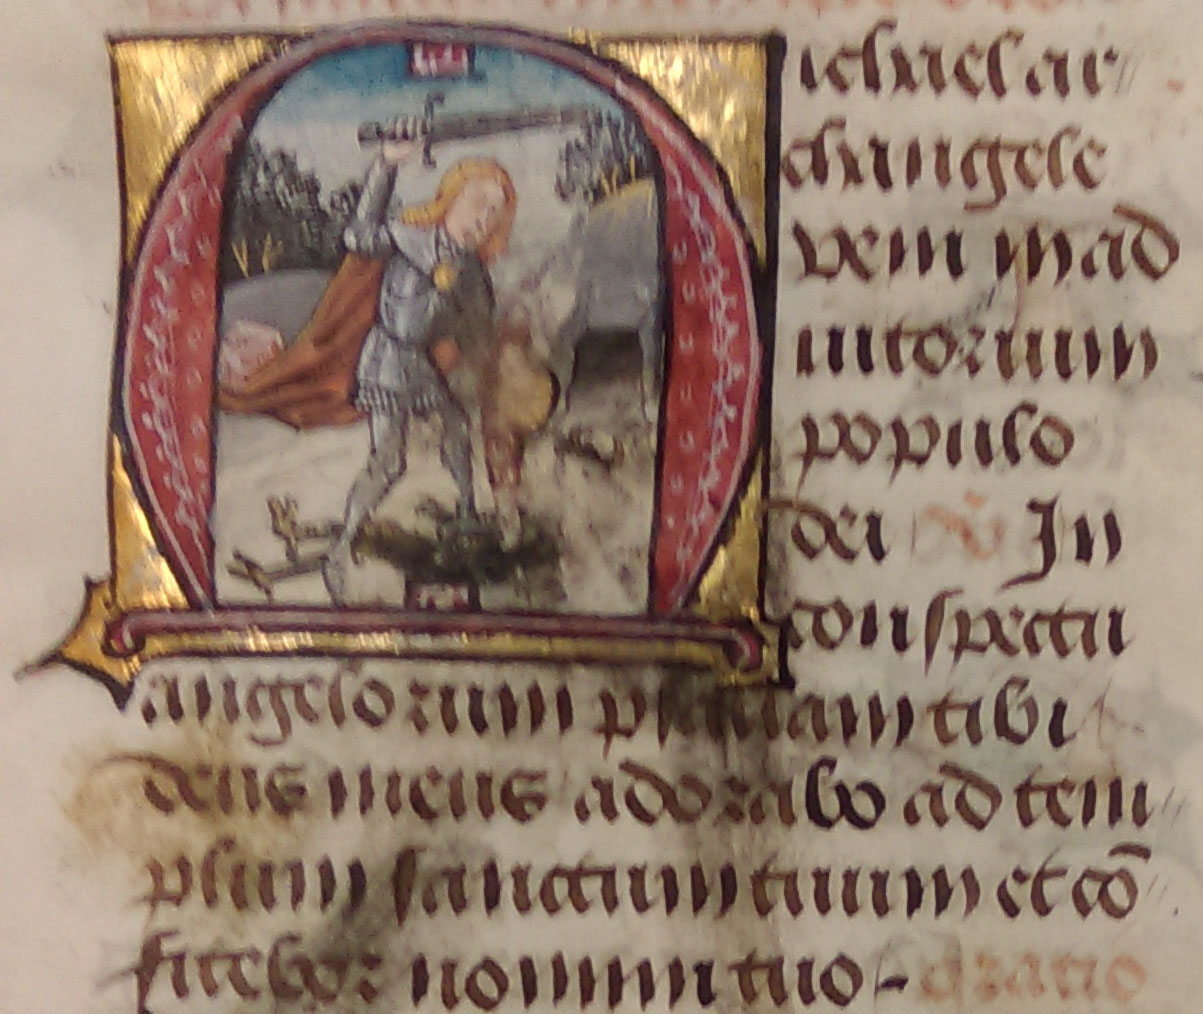 Michael ar//
changele
veni in ad
iutorium
populo
dei V In
conspectu
angelorum psallam tibi
deus meus adorabo ad tem//
plum sanctum tuum et co̅//
fitebor nomini tuo- Oratio